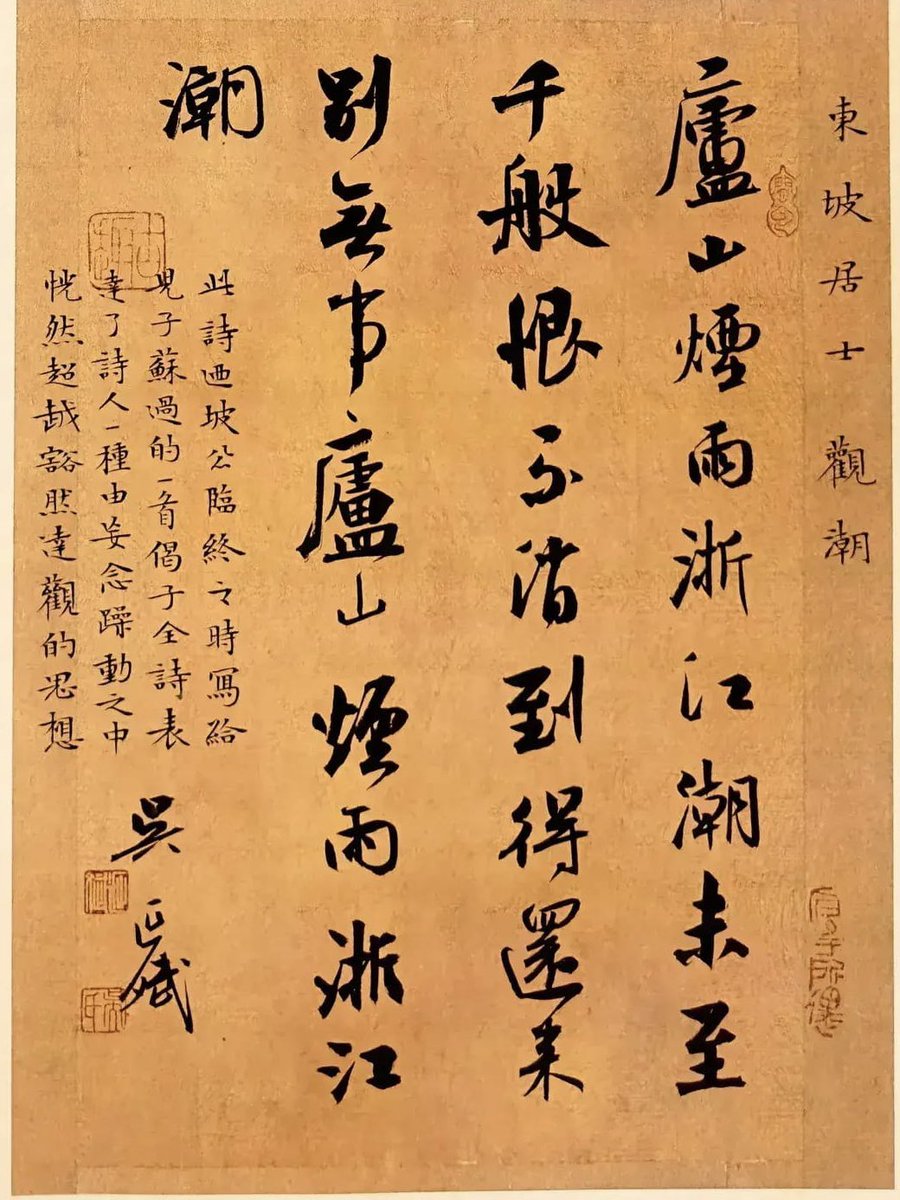 東坡居士觀潮
廬山煙雨浙江潮未至
千般恨不消到得還来
別無事廬山煙雨浙江
潮
此詩迺坡公臨終之時寫給
兒子蘇過的一首偈子全詩表
達了詩人一種由妄念躁動之中
恍然超越豁然達觀的思想
吳